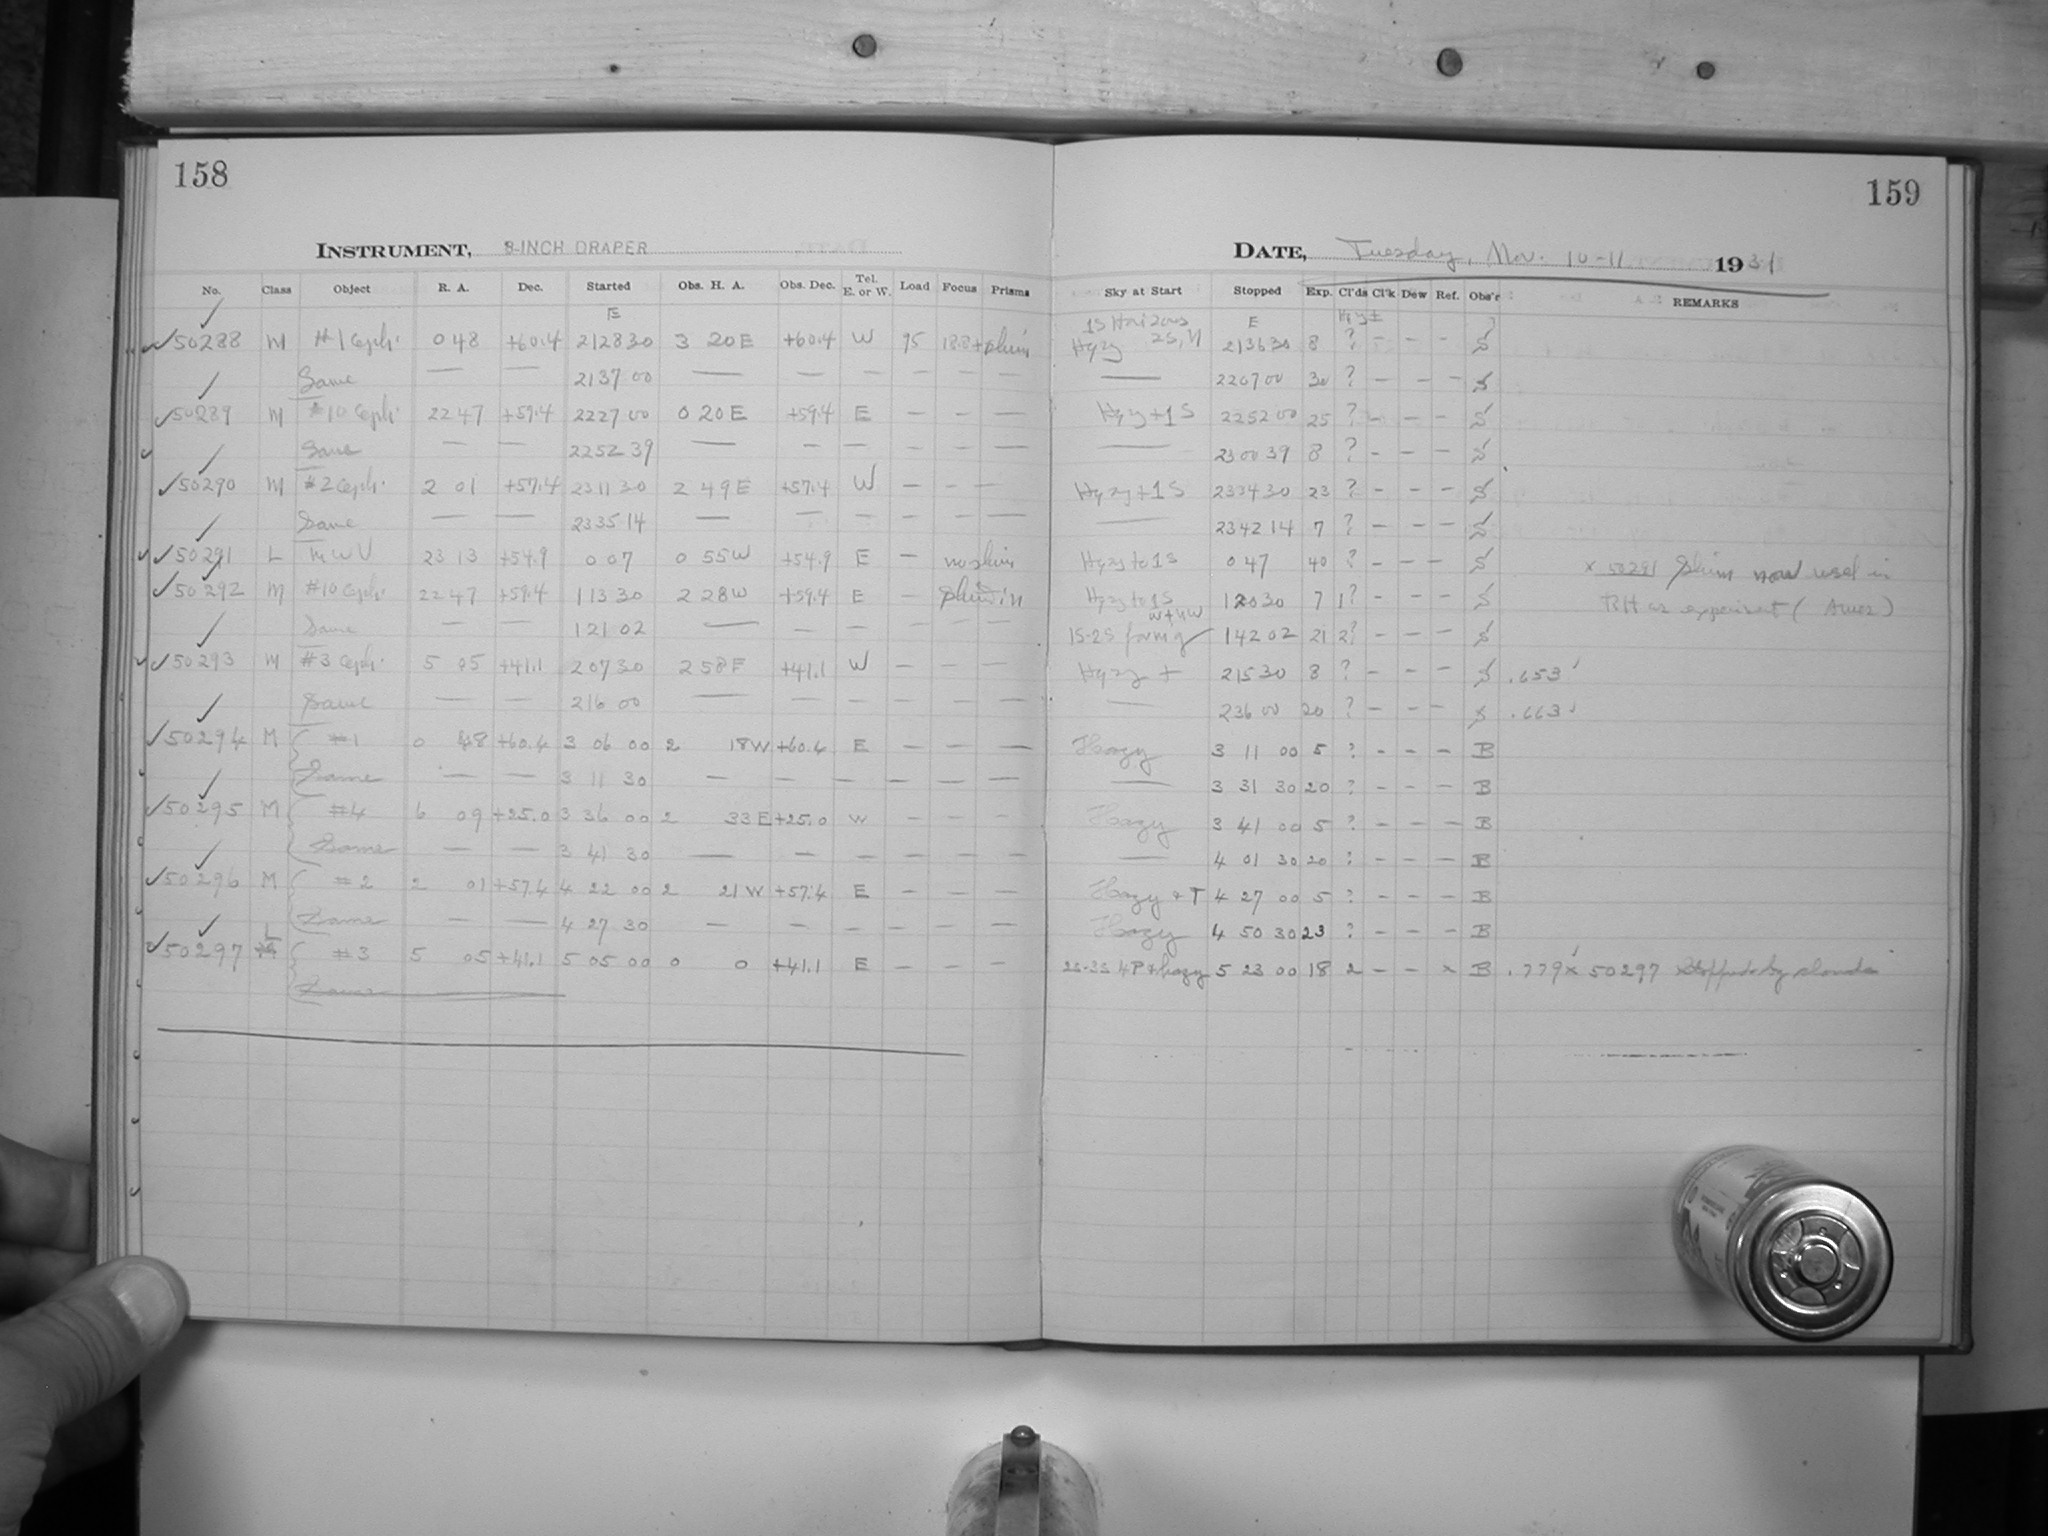 158
159
INSTRUMENT, 8-INCH DRAPER
DATE, Tuesday, Nov. 10-11 1931
No. Class Object R. A. Dec. Started Obs. H. A. Obs. Dec. Tel. E. or W. Load Focus Prisms Sky at Start Stopped Exp. Cl'ds Cl'k Dew Ref. Obs'r REMARKS
E E
50288 M #1 Ceph. 0 48 +60.4 21 28 30 3 20 E +60.4 W 95 Hazy 21 36 30 8 ? - - - S
Same — — 21 37 00 — — — — — — — 22 07 00 30 ? - - - S
50289 M #10 Ceph. 22 47 +59.4 22 27 00 0 20 E +59.4 E - - — Hazy + 1S 22 52 00 25 ? - - - S
Same — — 22 52 39 — — — — — — — 23 00 39 8 ? - - - S
50290 M #2 Ceph. 2 01 +57.4 23 11 30 2 49 E +57.4 W — - — Hazy + 1S 23 34 30 23 ? - - - S
Same — — 23 35 14 — — — — — — — 23 42 14 7 ? - - - S
50291 L MWV 23 13 +54.9 0 07 0 55 W +54.9 E — no shim Hazy to 1S 0 47 40 ? - - - S x 50291 Shim now used in
50292 M #10 Ceph. 22 47 +59.4 1 13 30 2 28 W +59.4 E - Hazy to 1S 1 20 30 7 1? - - - S RH as experiment
Same — — 1 21 02 — — — — — — 1S-2S forming 1 42 02 21 2? - - - S
50293 M #3 Ceph. 5 05 +41.1 2 07 30 2 58 E +41.1 W — — — Hazy + 2 15 30 8 ? - - - S .653
Same — — 2 16 00 — — — — — — — 2 36 00 20 ? - - - S .663
50294 M #1 0 48 +60.4 3 06 00 2 18 W +60.4 E — — — Hazy 3 11 00 5 ? - - - B
Same — — 3 11 30 — — — — — — — 3 31 30 20 ? - - - B
50295 M #4 6 09 +25.0 3 36 00 2 33 E +25.0 W — — — Hazy 3 41 00 5 ? - - - B
Same — — 3 41 30 — — — — — — — 4 01 30 20 ? - - - B
50296 M #2 2 01 +57.4 4 22 00 2 21 W +57.4 E — — — Hazy + T 4 27 00 5 ? - - - B
Same — — 4 27 30 — — — — — — Hazy 4 50 30 23 ? - - - B
50297 L #3 5 05 +41.1 5 05 00 0 0 +41.1 E — — — 2S-3S 4P + hazy 5 23 00 18 2 - - x B .779 x 50297 Stopped by clouds
Same